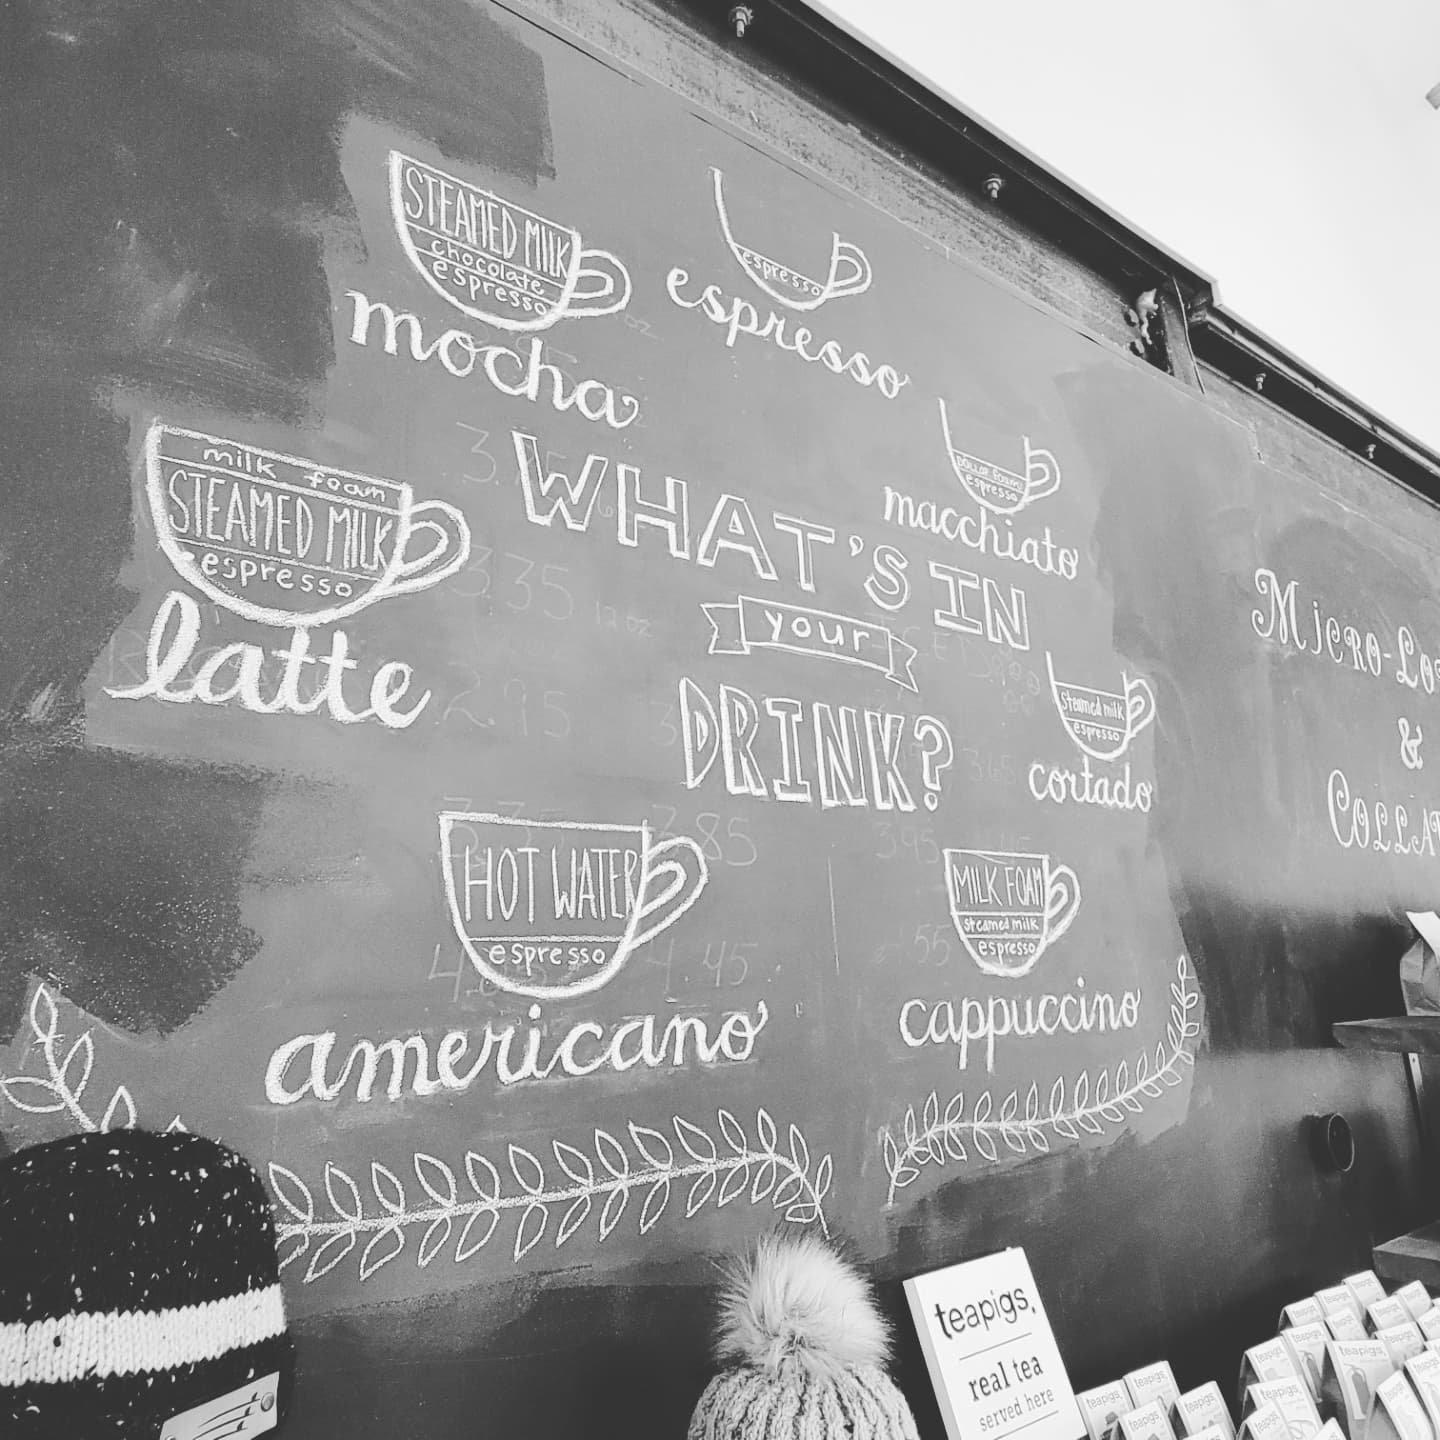 STEAMED MILK
chocolate
espresso
mocha
espresso
espresso
DOLLOP foam
espresso
macchiato
milk foam
STEAMED MILK
espresso
latte
WHAT'S IN
your
DRINK?
Steamed milk
espresso
cortado
HOT WATER
espresso
americano
MILK FOAM
steamed milk
espresso
cappuccino
MICRO-LO
&
COLLA
3.35 12oz
2.95
3.85
3.65
3.95
4.45
teapigs.
real tea
served here
teapigs.
teapigs.
teapigs.